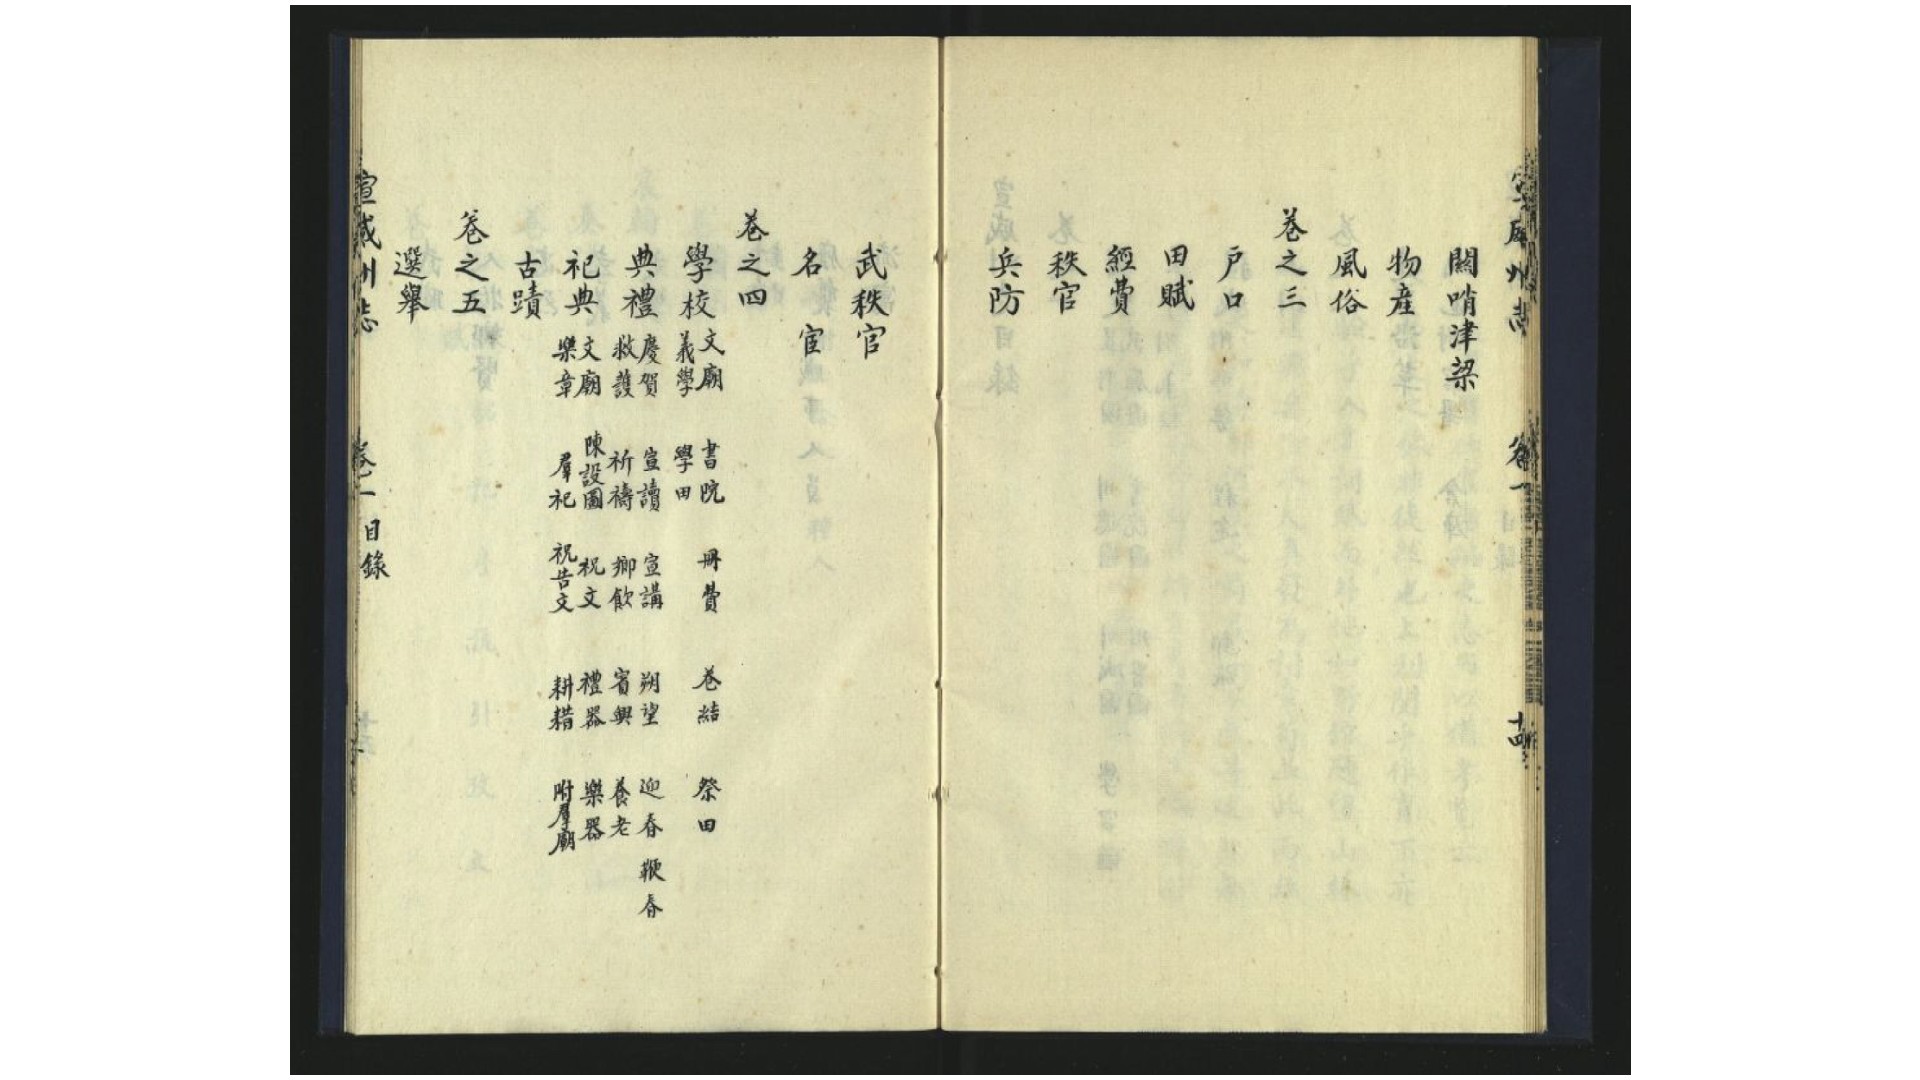 宣威州志
卷一
目錄
十四
關哨津梁
物產
風俗
卷之三
戶口
田賦
經費
秩官
兵防
武秩官
名宦
卷之四
學校 文廟 書院 冊費 卷結 祭田
義學 學田
典禮 慶賀 宣讀 宣講 朔望 迎春 鞭春
救護 祈禱 鄉飲 賓興 養老
祀典 文廟 陳設圖 祝文 禮器 樂器
樂章 羣祀 祝告文 耕耤 附羣廟
古蹟
卷之五
選舉
宣威州志
卷一
目錄